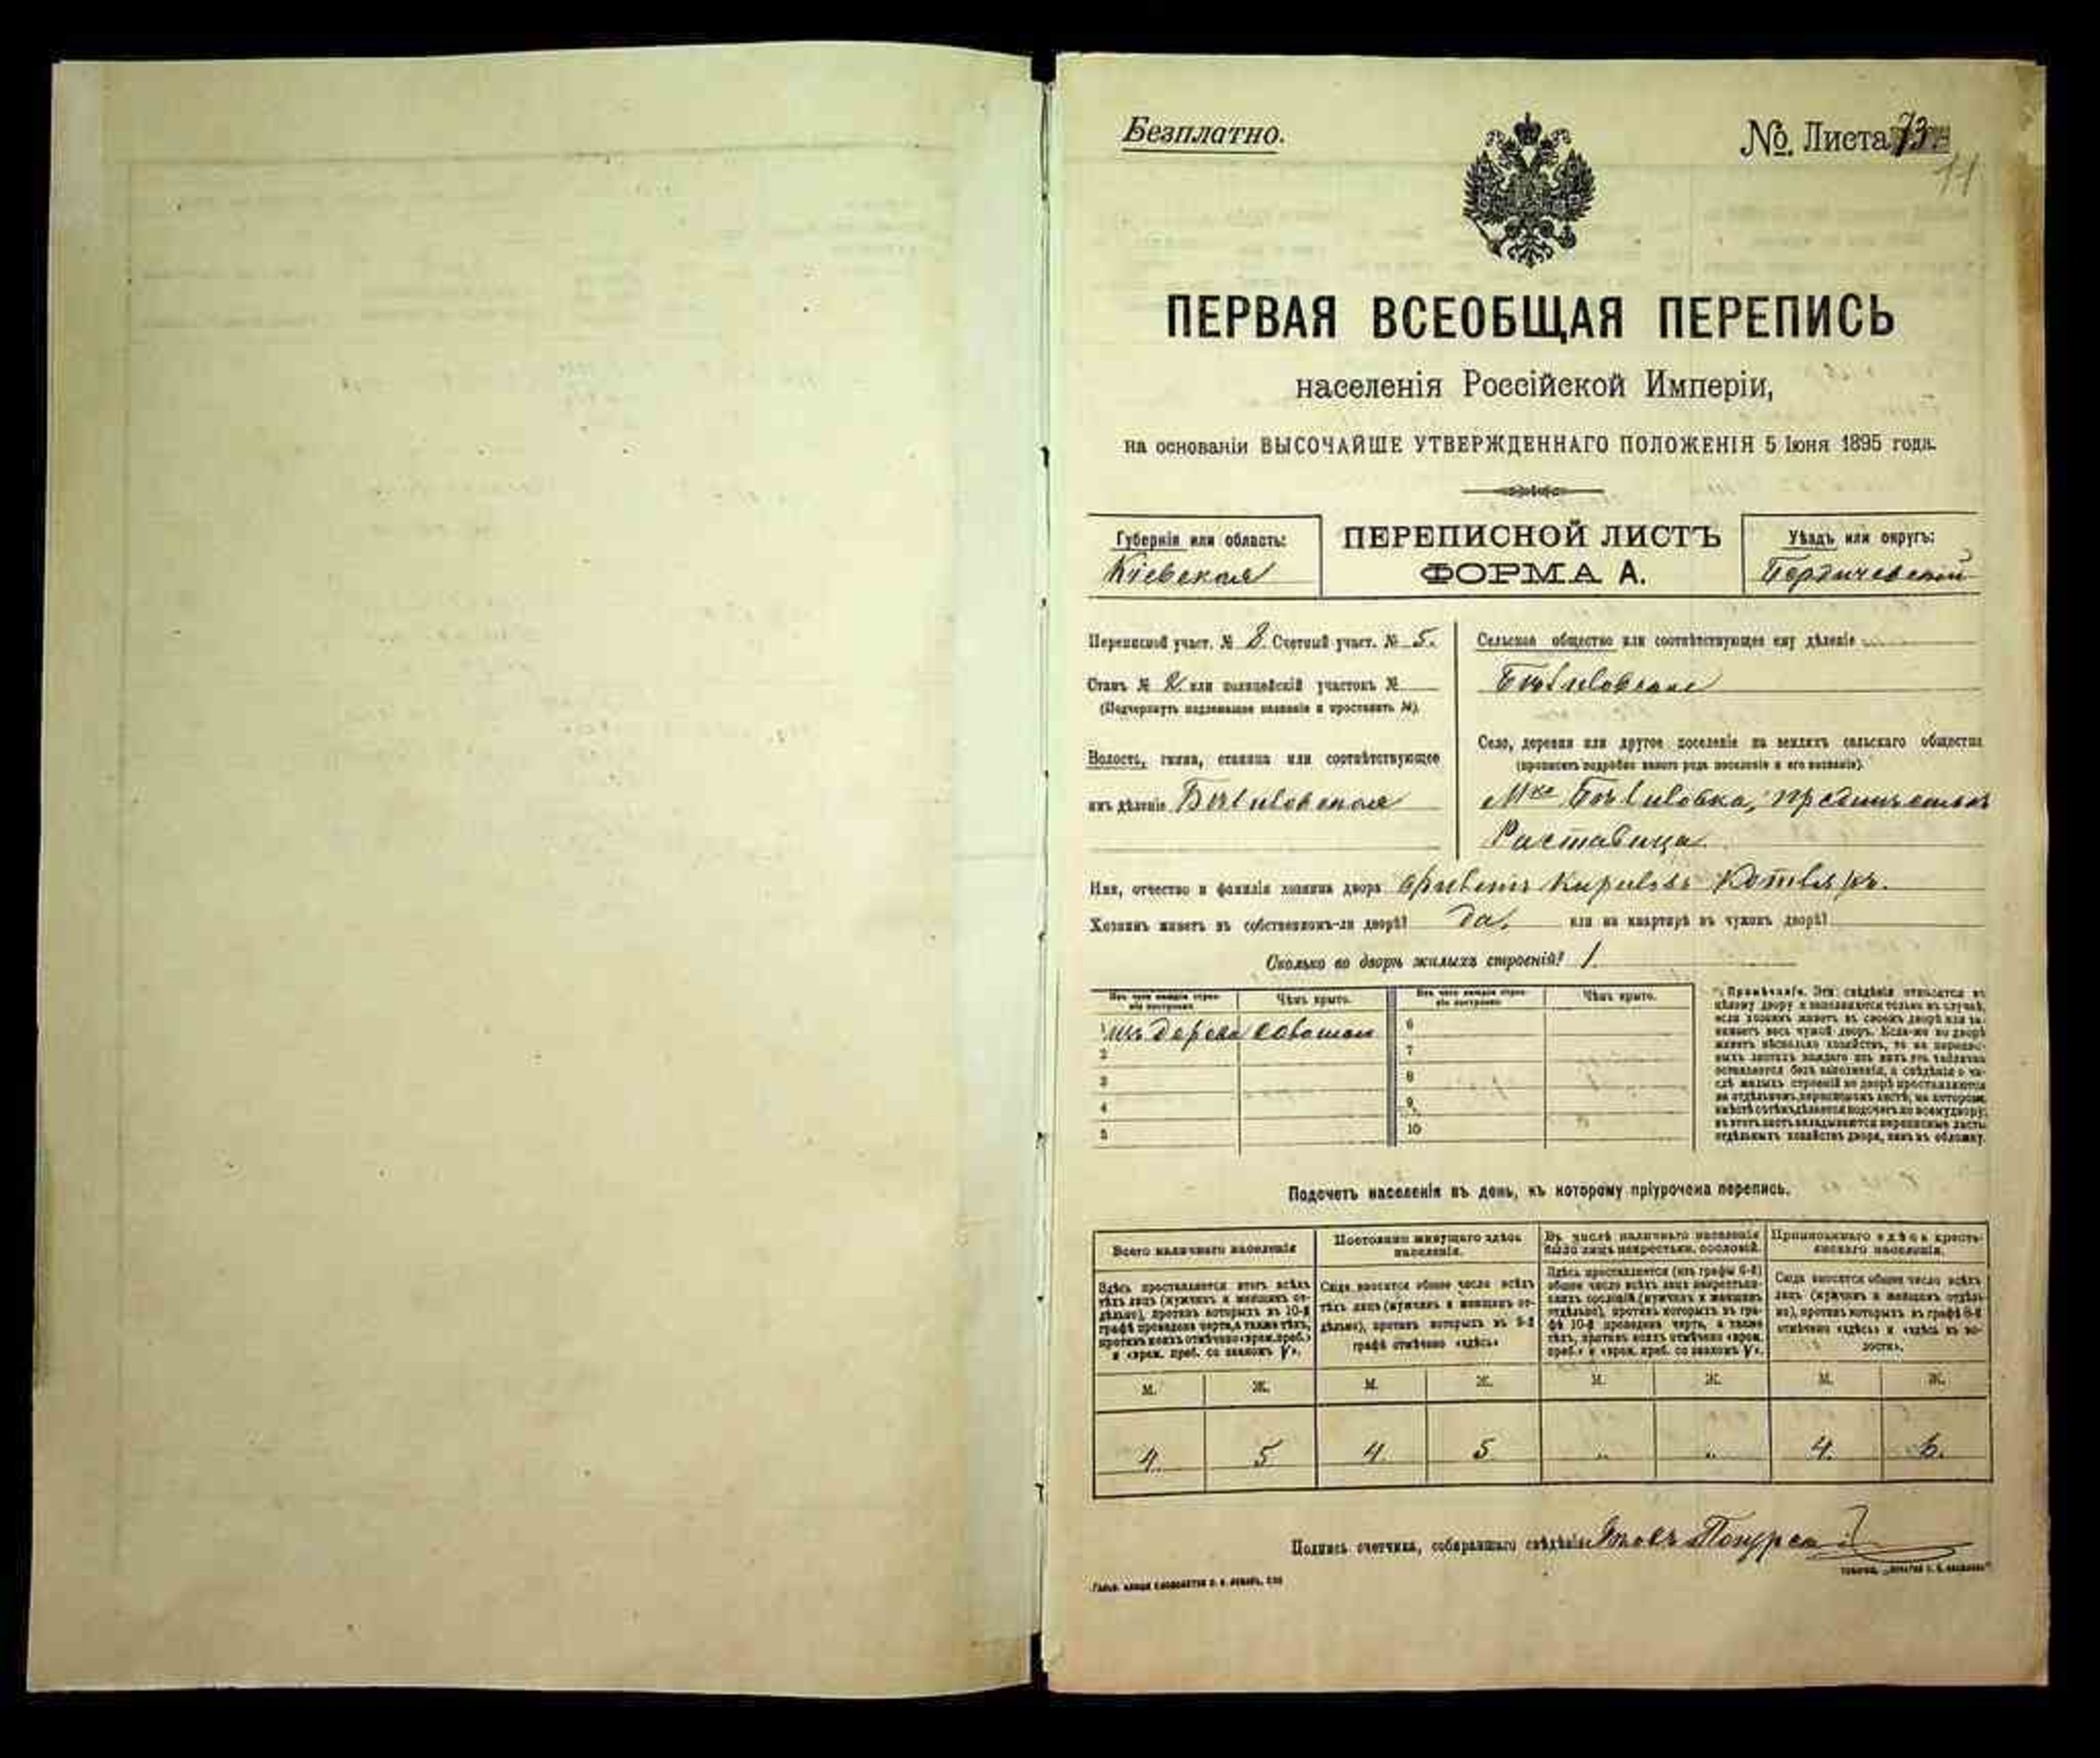 Безплатно.
№ Листа 73.
11
ПЕРВАЯ ВСЕОБЩАЯ ПЕРЕПИСЬ
населенія Россійской Имперіи,
на основаніи ВЫСОЧАЙШЕ УТВЕРЖДЕННАГО ПОЛОЖЕНІЯ 5 Іюня 1895 года.
Губернія или область:
Кіевская
ПЕРЕПИСНОЙ ЛИСТЪ
ФОРМА А.
Уѣздъ или округъ:
Бердичевскій
Переписной участ. № 8. Счетный участ. № 5.
Станъ № 2 или полицейскій участокъ №
(Подчеркнуть подлежащее названіе и проставить №).
Волость, гмина, станица или соотвѣтствующее
имъ дѣленіе
Сельское общество или соотвѣтствующее ему дѣленіе
Село, деревня или другое поселеніе на земляхъ сельскаго общества
(прописать подробно какого рода поселеніе и его названіе).
Раставица
Имя, отчество и фамилія хозяина двора Кириловъ Котляръ.
Хозяинъ живетъ въ собственномъ-ли дворѣ? да, или на квартирѣ въ чужомъ дворѣ?
Сколько во дворѣ жилыхъ строеній? 1.
Изъ чего каждое строеніе построено.
Чѣмъ крыто.
Изъ чего каждое строеніе построено.
Чѣмъ крыто.
1 изъ дерева соломою
2
3
4
5
6
7
8
9
10
Примѣчаніе. Эти свѣдѣнія относятся къ
цѣлому двору и заполняются только въ случаѣ,
если хозяинъ живетъ въ своемъ дворѣ или за-
нимаетъ весь чужой дворъ. Если-же во дворѣ
живетъ нѣсколько хозяйствъ, то на перепис-
ныхъ листахъ каждаго изъ нихъ эта табличка
оставляется безъ заполненія, а свѣдѣнія о чи-
слѣ жилыхъ строеній во дворѣ проставляются
на отдѣльномъ переписномъ листѣ, на которомъ
вмѣстѣ съ тѣмъ дѣлается подсчетъ по всему двору;
въ этотъ листъ вкладываются переписные листы
отдѣльныхъ хозяйствъ двора, какъ въ обложку.
Подсчетъ населенія въ день, къ которому пріурочена перепись.
Всего наличнаго населенія
Постоянно живущаго здѣсь
населенія.
Въ числѣ наличнаго населенія
было лицъ некрестьян. сословій.
Приписаннаго здѣсь кресть-
янскаго населенія.
Здѣсь проставляется итогъ всѣхъ
тѣхъ лицъ (мужчинъ и женщинъ от-
дѣльно), противъ которыхъ въ 10-й
графѣ проведена черта, а также тѣхъ,
противъ коихъ отмѣчено «врем. преб.»
и «врем. преб. со знакомъ V».
Сюда вносится общее число всѣхъ
тѣхъ лицъ (мужчинъ и женщинъ от-
дѣльно), противъ которыхъ въ 9-й
графѣ отмѣчено «здѣсь»
Здѣсь проставляется (изъ графы 6-й)
общее число всѣхъ лицъ некрестьян-
скихъ сословій (мужчинъ и женщинъ
отдѣльно), противъ которыхъ въ гра-
фѣ 10-й проведена черта, а также
тѣхъ, противъ коихъ отмѣчено «врем.
преб.» и «врем. преб. со знакомъ V».
Сюда вносится общее число всѣхъ
лицъ (мужчинъ и женщинъ отдѣль-
но), противъ которыхъ въ графѣ 8-й
отмѣчено «здѣсь» и «здѣсь въ во-
лости».
М. Ж. М. Ж. М. Ж. М. Ж.
4. 5 4. 5 „ „ 4. 6.
Подпись счетчика, собиравшаго свѣдѣнія